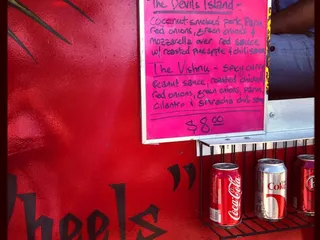 The Devils Island -
Coconut smoked pork,
red onions, green onions &
mozzarella over red sauce
w/ roasted pineapple & chili
The Vishnu - spicy
peanut sauce, roasted chicken
red onions, green onions,
cilantro & sriracha
$8.00
Wheels"
Coca-Cola
Coke